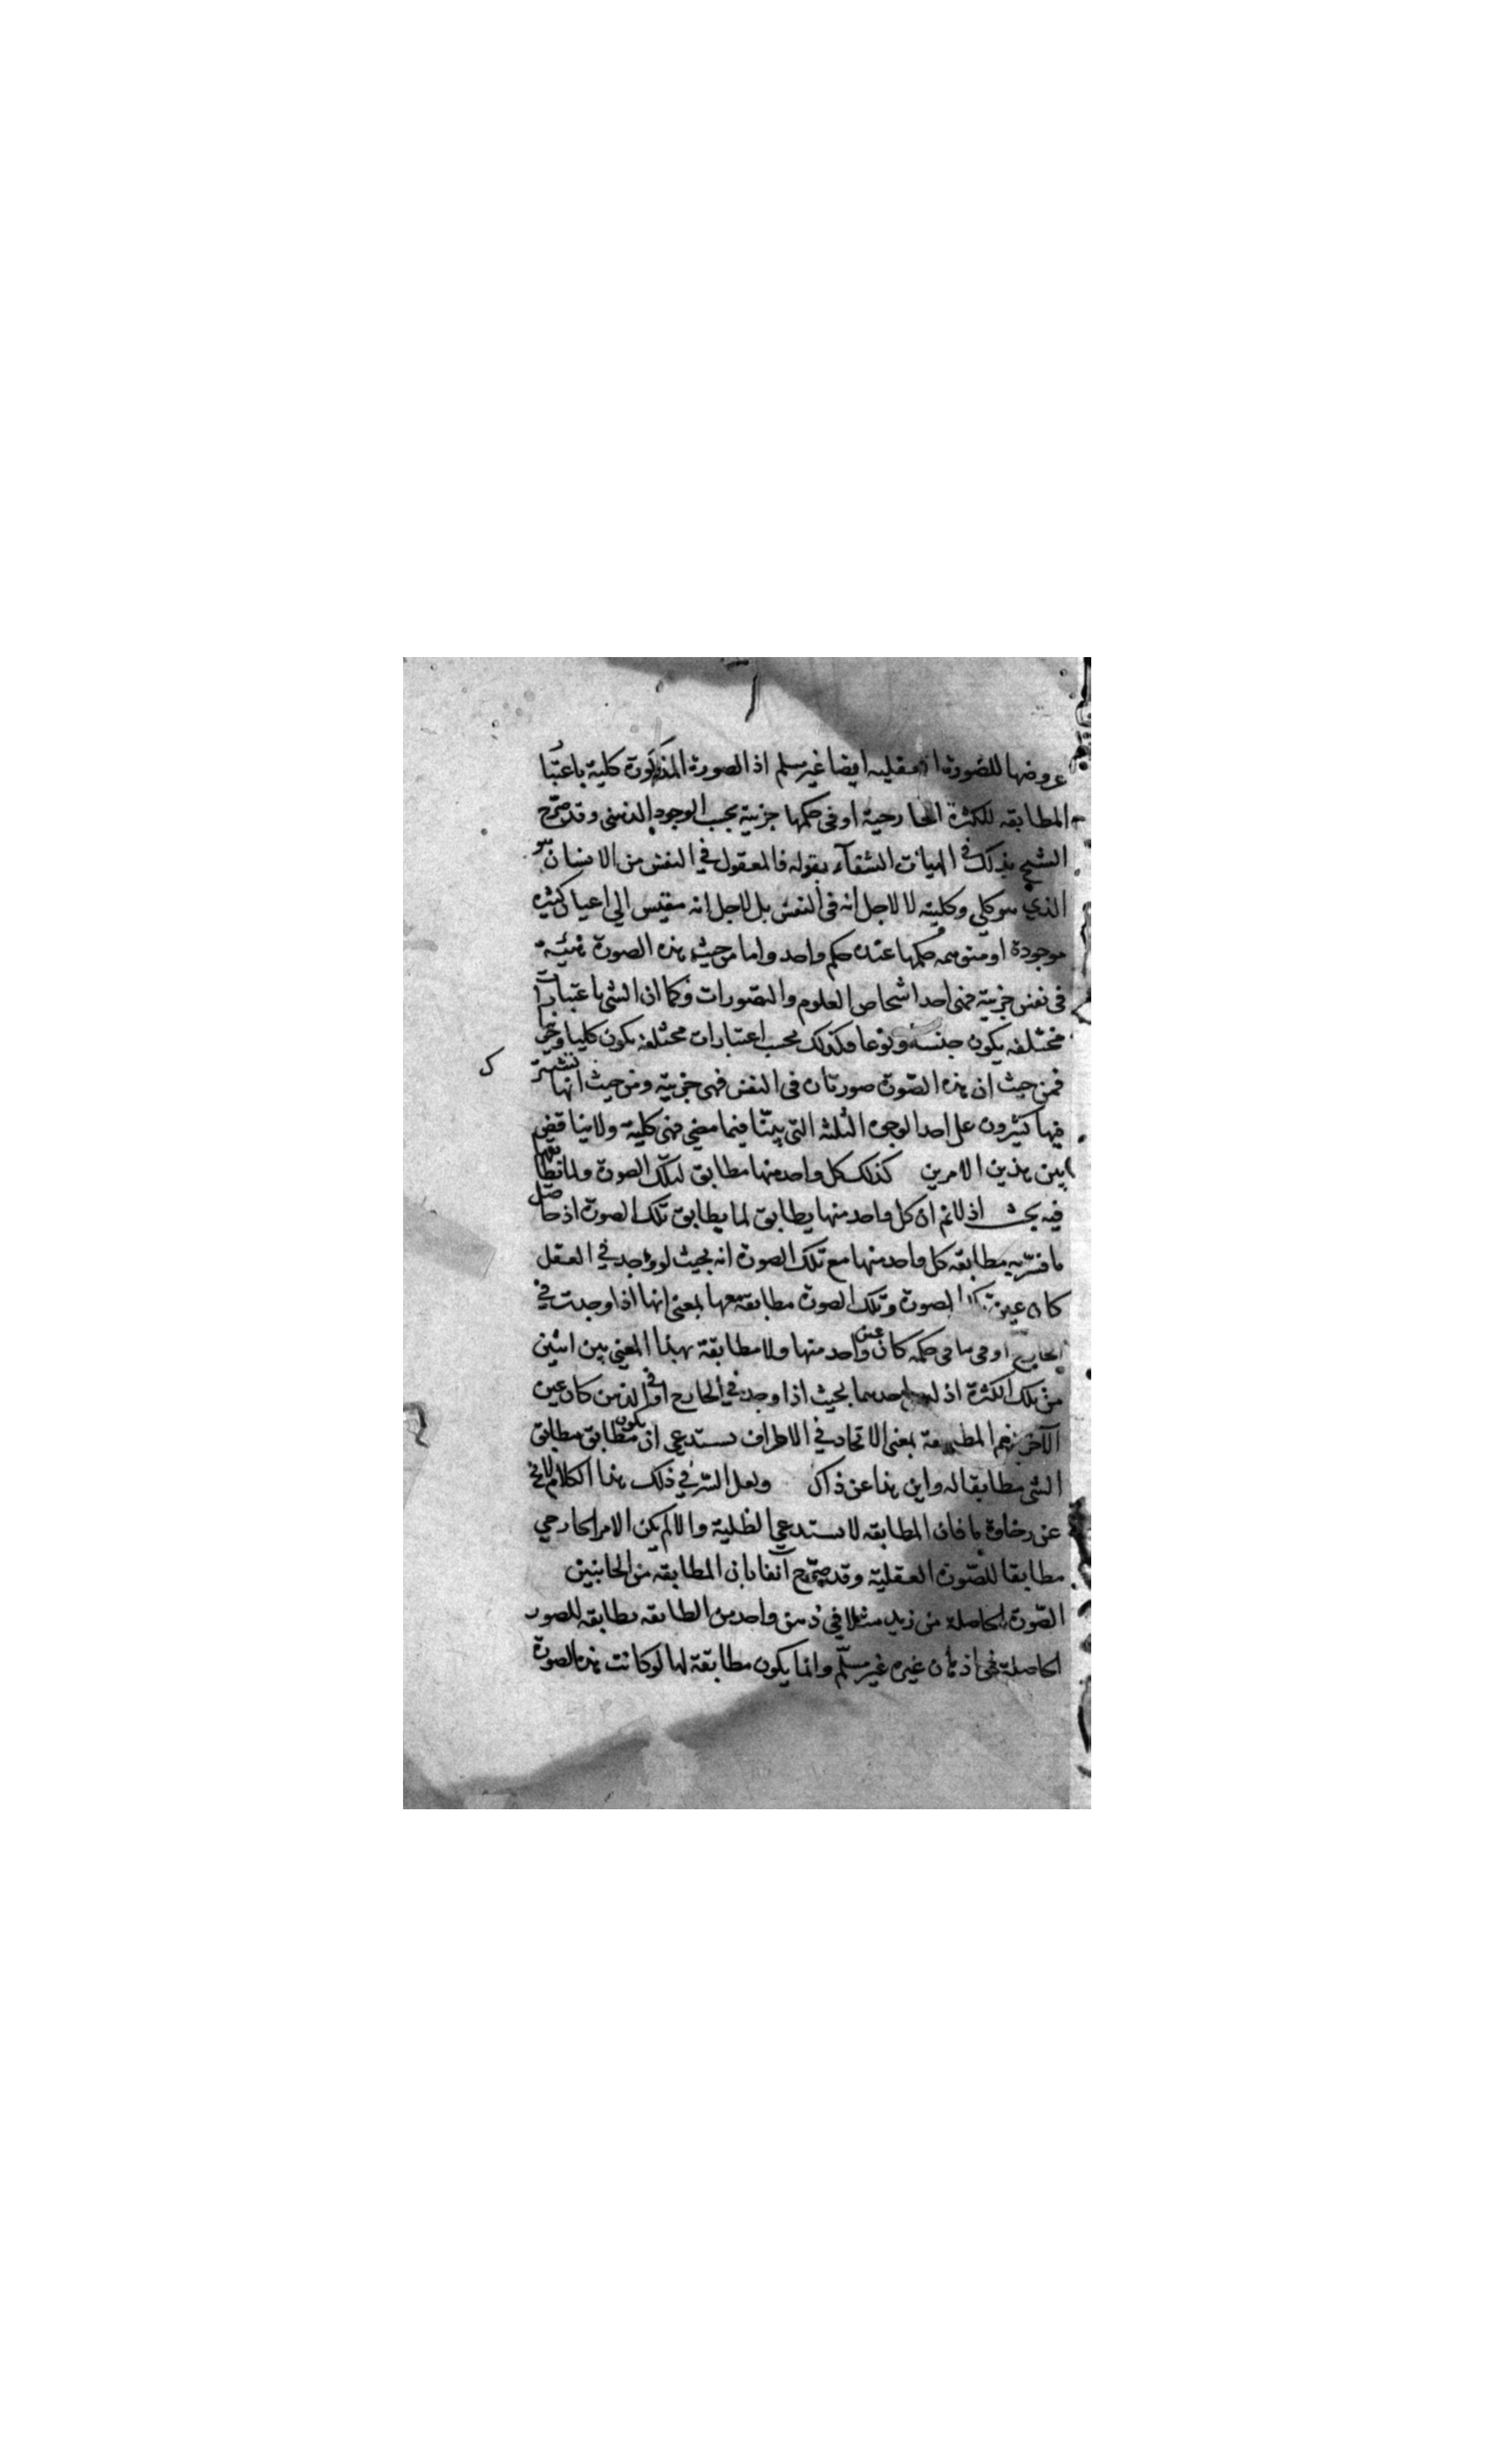 عروضها للصورة العقلية ايضا غير مسلم اذ الصورة المذكورة كلية باعتبا
المطابقه للكثرة الخارجية او فى حكمها جزئية بحسب الوجود الذهنى وقد صرّح
الشيخ بذلك في الهيات الشفآء بقوله فالمعقول في النفس من الانسان هو
الذي هو كلي وكليته لا لاجل انه فى النفس بل لاجل انه مقيس الي اعيان كثيره
موجودة او متوهمه حكمها عنده حكم واحد واما من حيث هذه الصورة هيئة
فى نفس جزئية فهى احد اشخاص العلوم والتصورات وكما ان الشئ باعتبارات
مختلفه يكون جنسا ونوعا فكذلك بحسب اعتبارات مختلفه يكون كليا وجزئيا
فمن حيث ان هذه الصّورة صورة ما فى النفس فهى جزئيه ومن حيث انها تشترك
فيها كثيرون على احد الوجوه الثلثه التى بيّنا فيما مضي فهى كلية ولا يناقض
بين هذين الامرين كذلك كل واحد منها مطابق لتلك الصورة ولما تطابقها
فيه بحث اذ لا نم ان كل واحد منها يطابق لما يطابق تلك الصورة اذ حاصل
ما فسّر به مطابقه كل واحد منها مع تلك الصورة انه بحيث لو وجد في العقل
كان عين تلك الصورة وتلك الصورة مطابقة معها بمعنى انها اذا وجدت في
الخارج او في ما فى حكمه كان عين واحد منها ولا مطابقة بهذا المعني بين اثنين
من تلك الكثرة اذ ليس احدهما بحيث اذا وجد في الخارج او في الذهن كان عين
الآخر نعم المطابقة بمعنى الاتحاد في الاطراف يستدعى ان يكون مطابق مطابق
الشئ مطابقا له واين هذا عن ذاك ولعل السّر في ذلك هذا الكلام لا يخ
عن رخاوة ما فان المطابقه لا يستدعي الظلية والا لم يكن الامر الخارجي
مطابقا للصّورة العقلية وقد صرّح آنفا بان المطابقه من الجانبين
الصّورة الحاصلة من زيد مثلا في ذهن واحد من الطائفه مطابقه للصور
الحاصلة فى اذهان غيره غير مسلّم وانما يكون مطابقة لها لو كانت هذه الصورة